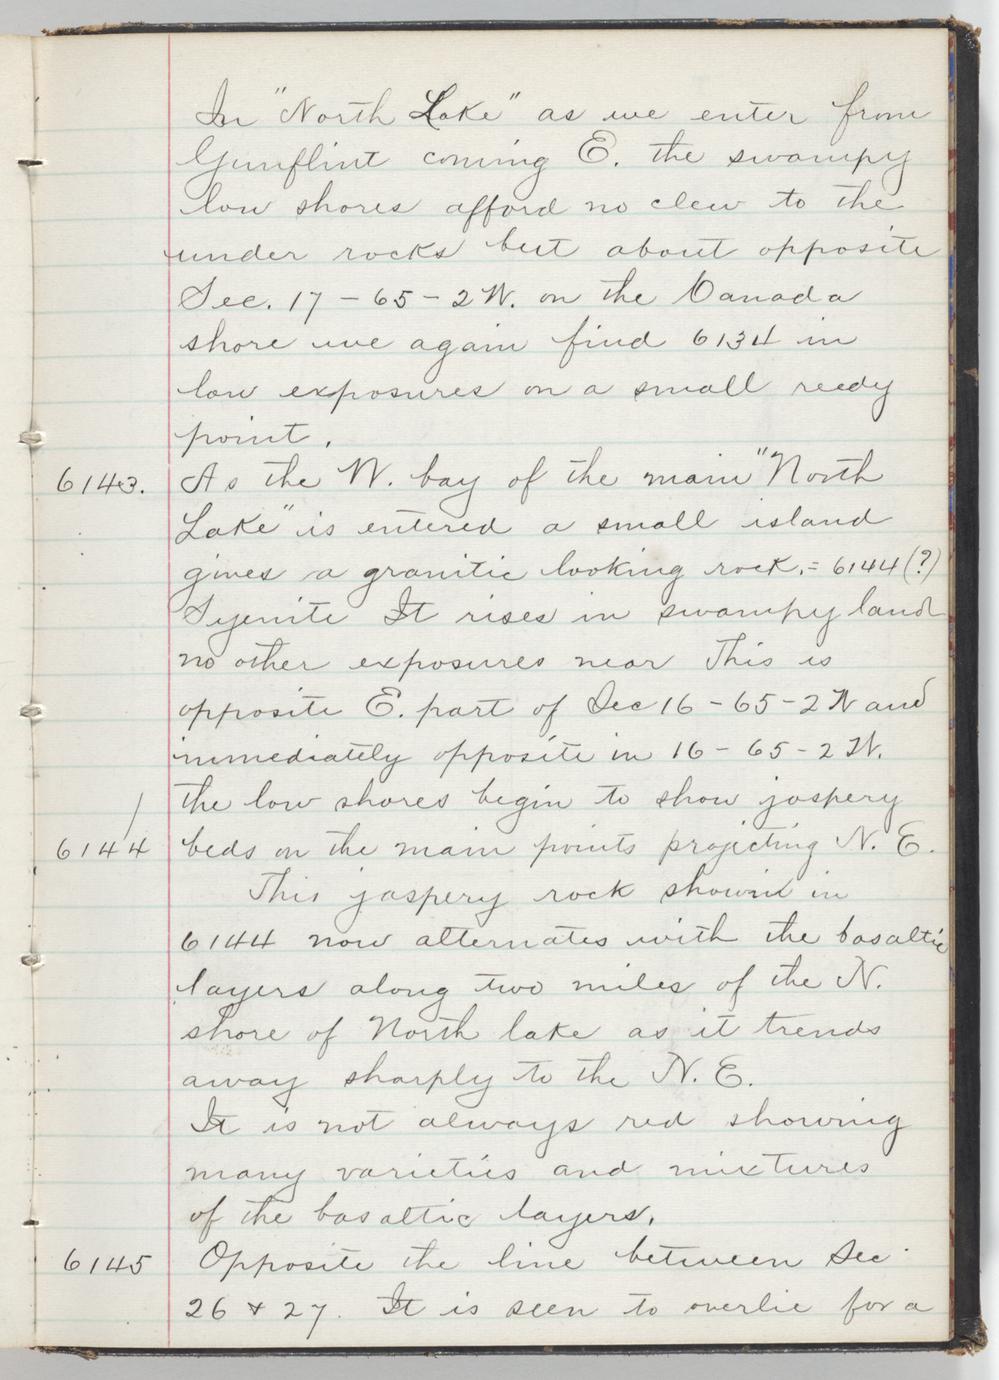 In "North Lake" as we enter from
Gunflint coming E. the swampy
low shores afford no clew to the
under rocks but about opposite
Sec. 17 - 65 - 2 W. on the Canada
shore we again find 6134 in
low exposures on a small reedy
point.
6143. As the W. bay of the main "North
Lake" is entered a small island
gives a granitic looking rock. = 6144 (?)
Syenite It rises in swampy land
no other exposures near This is
opposite E. part of Sec 16 - 65 - 2 W and
immediately opposite in 16 - 65 - 2 W.
the low shores begin to show jaspery
6144 beds on the main points projecting N. E.
This jaspery rock shown in
6144 now alternates with the basaltic
layers along two miles of the N.
shore of North lake as it trends
away sharply to the N. E.
It is not always red showing
many varieties and mixtures
of the basaltic layers.
6145 Opposite the line between Sec
26 & 27. It is seen to overlie for a